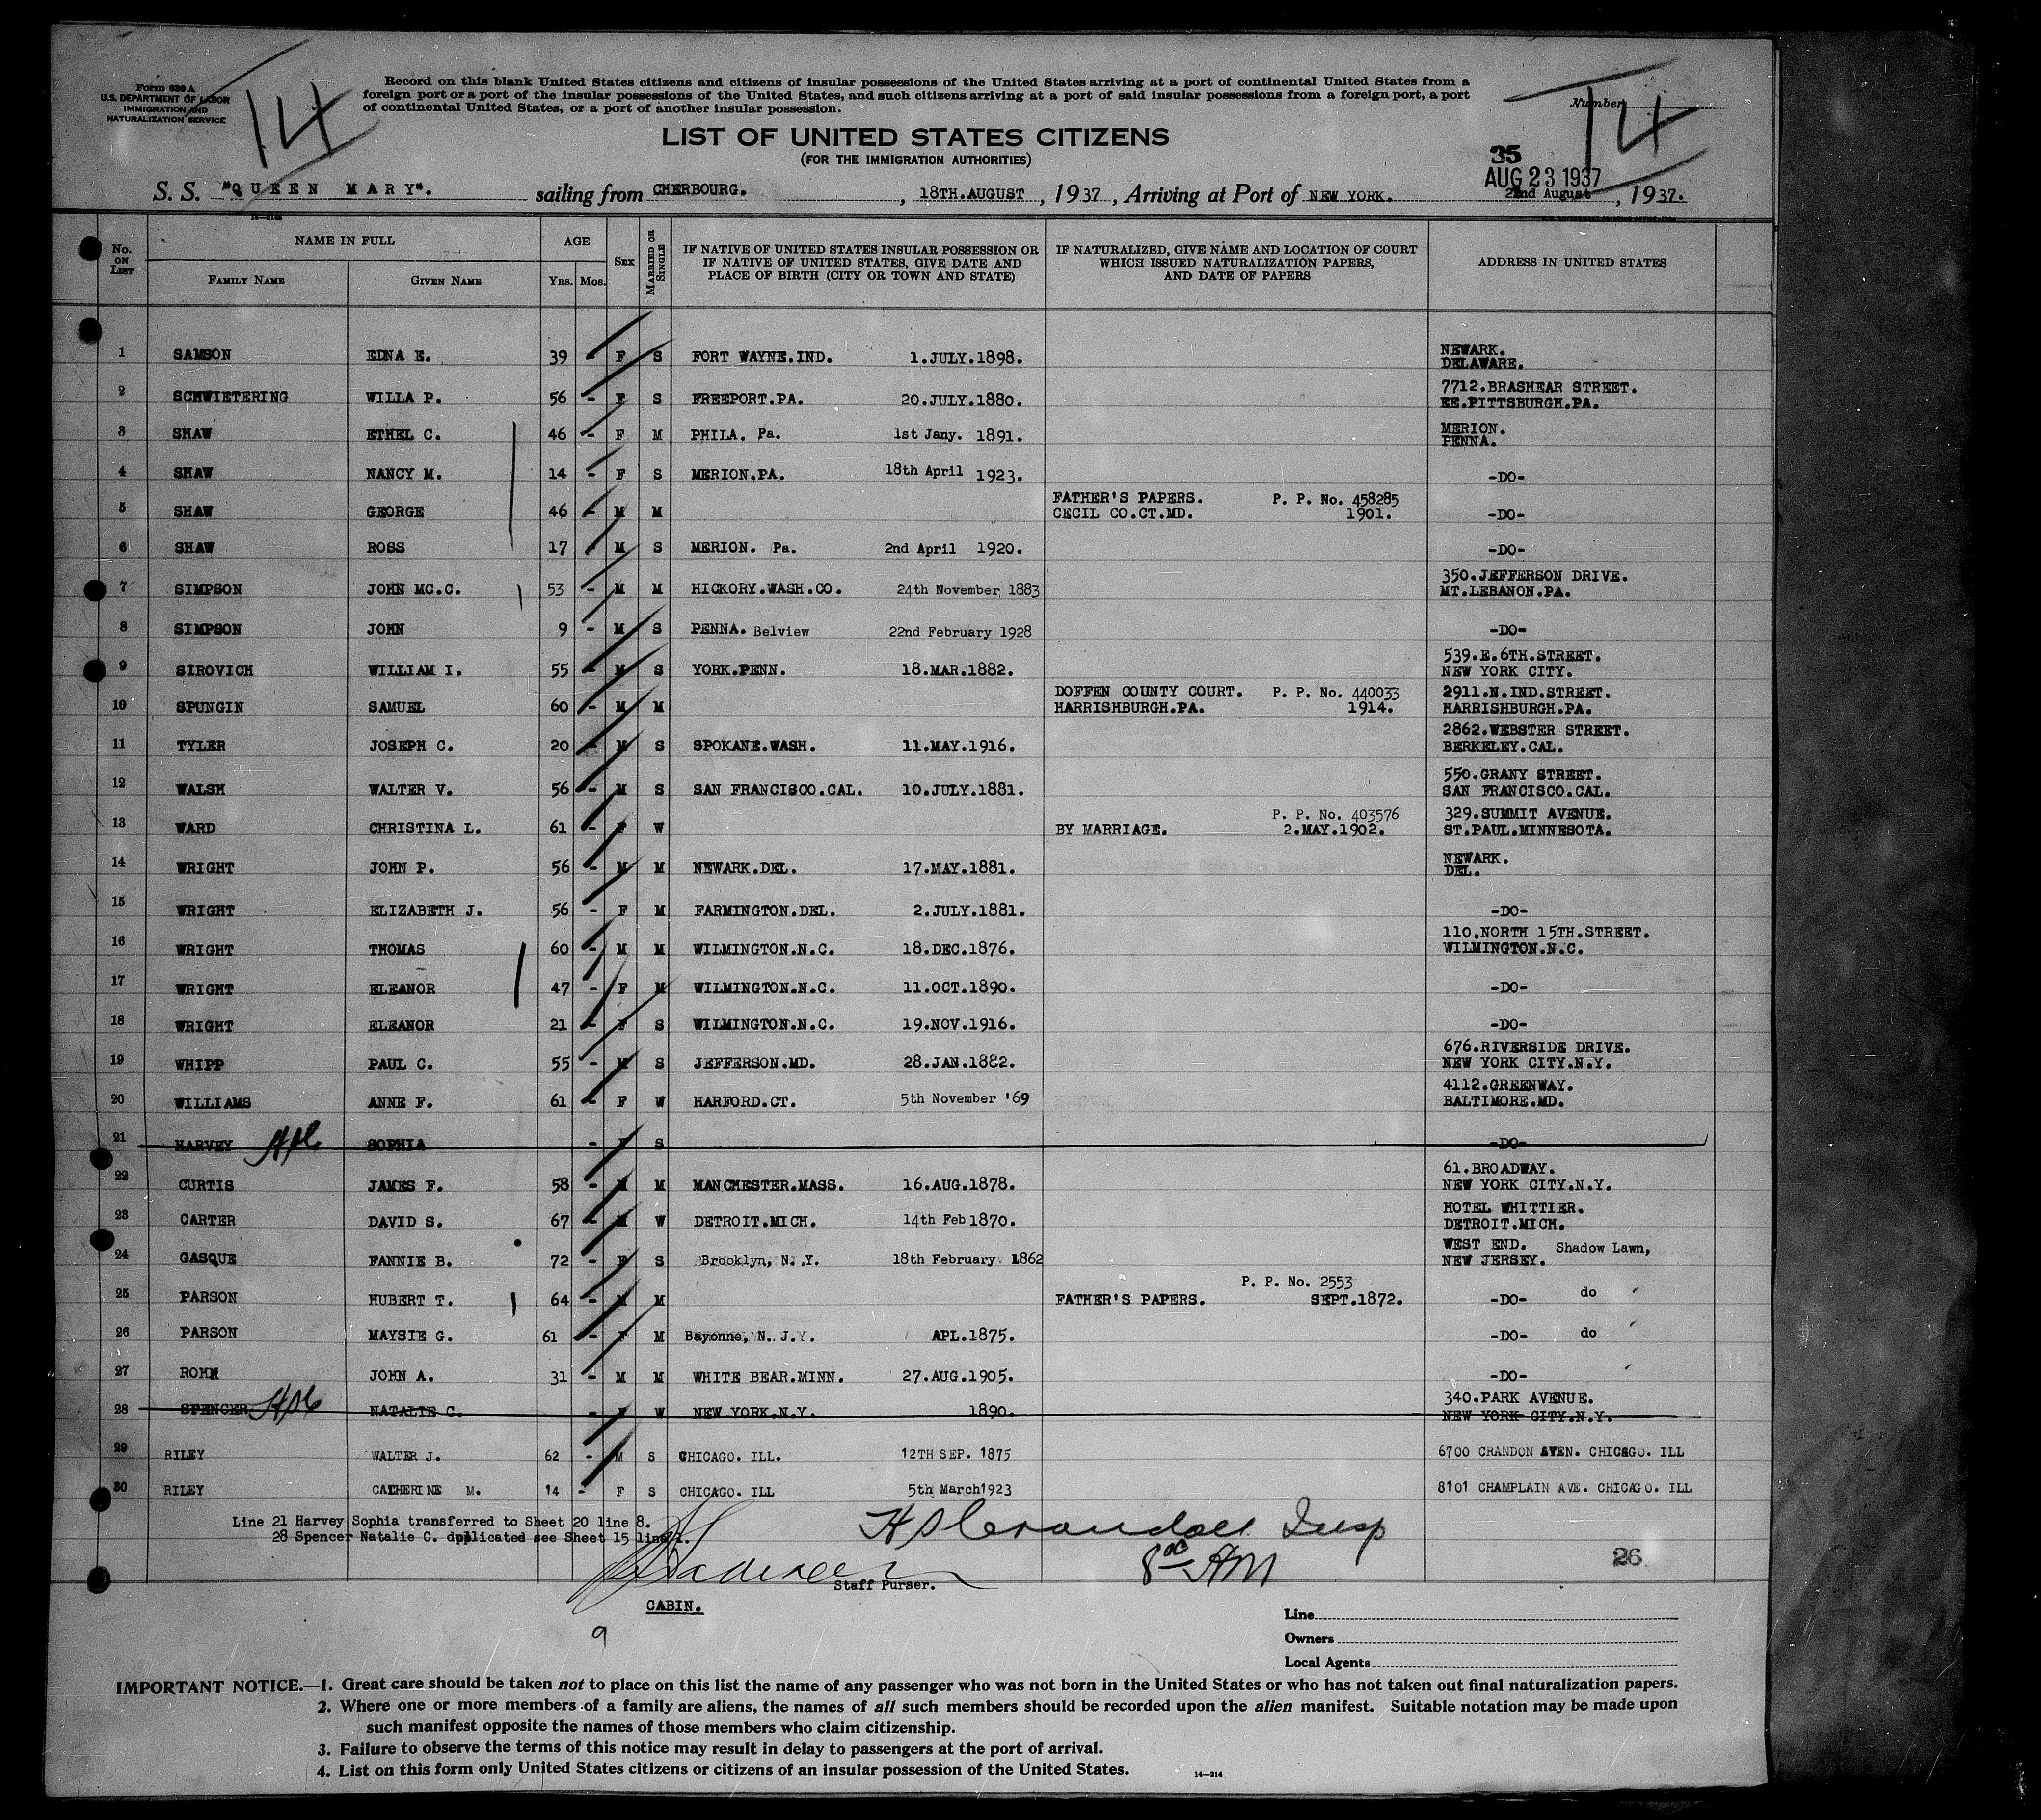 Form 630 A
U.S. DEPARTMENT OF LABOR
IMMIGRATION AND
NATURALIZATION SERVICE
14
Record on this blank United States citizens and citizens of insular possessions of the United States arriving at a port of continental United States from a
foreign port or a port of the insular possessions of the United States, and such citizens arriving at a port of said insular possessions from a foreign port, a port
of continental United States, or a port of another insular possession.
Number
14
LIST OF UNITED STATES CITIZENS
(FOR THE IMMIGRATION AUTHORITIES)
35
AUG 23 1937
S. S. "QUEEN MARY". sailing from CHERBOURG. , 18TH.AUGUST , 1937 , Arriving at Port of NEW YORK. 22nd August , 1937.
No. ON LIST
NAME IN FULL
FAMILY NAME GIVEN NAME
AGE
YRS. MOS.
SEX
MARRIED OR SINGLE
IF NATIVE OF UNITED STATES INSULAR POSSESSION OR
IF NATIVE OF UNITED STATES, GIVE DATE AND
PLACE OF BIRTH (CITY OR TOWN AND STATE)
IF NATURALIZED, GIVE NAME AND LOCATION OF COURT
WHICH ISSUED NATURALIZATION PAPERS,
AND DATE OF PAPERS
ADDRESS IN UNITED STATES
1 SAMSON EDNA E. 39 - F S FORT WAYNE.IND. 1.JULY.1898. NEWARK.
DELAWARE.
2 SCHWIETERING WILLA P. 56 - F S FREEPORT.PA. 20.JULY.1880. 7712.BRASHEAR STREET.
EE.PITTSBURGH.PA.
3 SHAW ETHEL C. 46 - F M PHILA. Pa. 1st Jany. 1891. MERION.
PENNA.
4 SHAW NANCY M. 14 - F S MERION.PA. 18th April 1923. -DO-
FATHER'S PAPERS. P. P. No. 458285
5 SHAW GEORGE 46 - M M CECIL CO.CT.MD. 1901. -DO-
6 SHAW ROSS 17 - M S MERION. Pa. 2nd April 1920. -DO-
7 SIMPSON JOHN MC.C. 53 - M M HICKORY.WASH.CO. 24th November 1883 350.JEFFERSON DRIVE.
MT.LEBANON.PA.
8 SIMPSON JOHN 9 - M S PENNA. Belview 22nd February 1928 -DO-
9 SIROVICH WILLIAM I. 55 - M S YORK.PENN. 18.MAR.1882. 539.E.6TH.STREET.
NEW YORK CITY.
DOFFEN COUNTY COURT. P. P. No. 440033 2911.N.IND.STREET.
10 SPUNGIN SAMUEL 60 - M M HARRISHBURGH.PA. 1914. HARRISHBURGH.PA.
11 TYLER JOSEPH C. 20 - M S SPOKANE.WASH. 11.MAY.1916. 2862.WEBSTER STREET.
BERKELEY.CAL.
12 WALSH WALTER V. 56 - M S SAN FRANCISCO.CAL. 10.JULY.1881. 550.GRANY STREET.
SAN FRANCISCO.CAL.
P. P. No. 403576 329.SUMMIT AVENUE.
13 WARD CHRISTINA L. 61 - F W BY MARRIAGE. 2.MAY.1902. ST.PAUL.MINNESOTA.
14 WRIGHT JOHN P. 56 - M M NEWARK.DEL. 17.MAY.1881. NEWARK.
DEL.
15 WRIGHT ELIZABETH J. 56 - F M FARMINGTON.DEL. 2.JULY.1881. -DO-
16 WRIGHT THOMAS 60 - M M WILMINGTON.N.C. 18.DEC.1876. 110.NORTH 15TH.STREET.
WILMINGTON.N.C.
17 WRIGHT ELEANOR 47 - F M WILMINGTON.N.C. 11.OCT.1890. -DO-
18 WRIGHT ELEANOR 21 - F S WILMINGTON.N.C. 19.NOV.1916. -DO-
19 WHIPP PAUL C. 55 - M S JEFFERSON.MD. 28.JAN.1882. 676.RIVERSIDE DRIVE.
NEW YORK CITY.N.Y.
20 WILLIAMS ANNE F. 61 - F W HARFORD.CT. 5th November '69 4112.GREENWAY.
BALTIMORE.MD.
21 HARVEY SOPHIA - F S -DO-
22 CURTIS JAMES F. 58 - M M MANCHESTER.MASS. 16.AUG.1878. 61.BROADWAY.
NEW YORK CITY.N.Y.
23 CARTER DAVID S. 67 - M W DETROIT.MICH. 14th Feb 1870. HOTEL WHITTIER.
DETROIT.MICH.
24 GASQUE FANNIE B. 72 - F S Brooklyn, N. Y. 18th February 1862 WEST END. Shadow Lawn,
NEW JERSEY.
P. P. No. 2553
25 PARSON HUBERT T. 64 - M M FATHER'S PAPERS. SEPT.1872. -DO- do
26 PARSON MAYSIE G. 61 - F M Bayonne, N. J. APL.1875. -DO- do
27 ROHN JOHN A. 31 - M M WHITE BEAR.MINN. 27.AUG.1905. -DO-
28 SPENCER NATALIE C. - F W NEW YORK.N.Y. 1890. 340.PARK AVENUE.
NEW YORK CITY.N.Y.
29 RILEY WALTER J. 62 - M S CHICAGO. ILL. 12TH SEP. 1875 6700 CRANDON AVEN. CHICAGO. ILL
30 RILEY CATHERINE M. 14 - F S CHICAGO. ILL 5th March1923 8101 CHAMPLAIN AVE. CHICAGO. ILL
Line 21 Harvey Sophia transferred to Sheet 20 line 8.
28 Spencer Natalie C. duplicated see Sheet 15 line
Insp
8 AM
26
Staff Purser.
CABIN.
9
Line
Owners
Local Agents
IMPORTANT NOTICE.—1. Great care should be taken not to place on this list the name of any passenger who was not born in the United States or who has not taken out final naturalization papers.
2. Where one or more members of a family are aliens, the names of all such members should be recorded upon the alien manifest. Suitable notation may be made upon
such manifest opposite the names of those members who claim citizenship.
3. Failure to observe the terms of this notice may result in delay to passengers at the port of arrival.
4. List on this form only United States citizens or citizens of an insular possession of the United States.
14—214